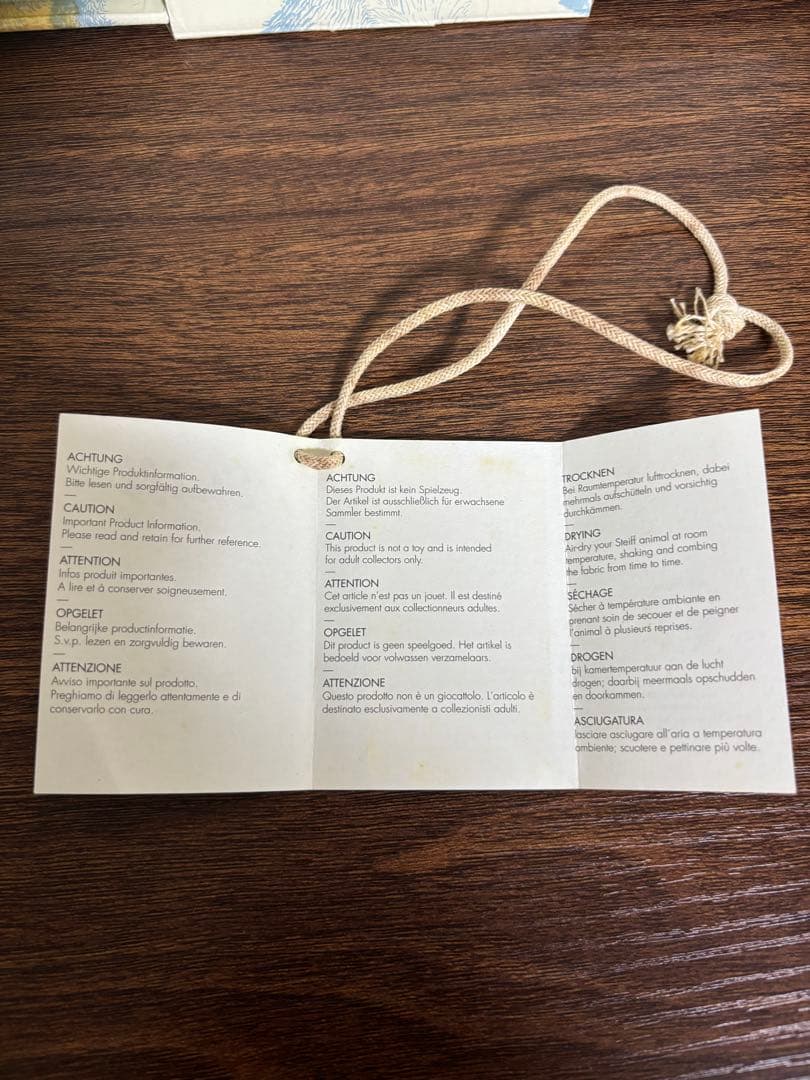 ACHTUNG
Wichtige Produktinformation.
Bitte lesen und sorgfältig aufbewahren.
—
CAUTION
Important Product Information.
Please read and retain for further reference.
—
ATTENTION
Infos produit importantes.
A lire et à conserver soigneusement.
—
OPGELET
Belangrijke productinformatie.
S.v.p. lezen en zorgvuldig bewaren.
—
ATTENZIONE
Avviso importante sul prodotto.
Preghiamo di leggerlo attentamente e di
conservarlo con cura.
ACHTUNG
Dieses Produkt ist kein Spielzeug.
Der Artikel ist ausschließlich für erwachsene
Sammler bestimmt.
—
CAUTION
This product is not a toy and is intended
for adult collectors only.
—
ATTENTION
Cet article n'est pas un jouet. Il est destiné
exclusivement aux collectionneurs adultes.
—
OPGELET
Dit product is geen speelgoed. Het artikel is
bedoeld voor volwassen verzamelaars.
—
ATTENZIONE
Questo prodotto non è un giocattolo. L'articolo è
destinato esclusivamente a collezionisti adulti.
TROCKNEN
Bei Raumtemperatur lufttrocknen, dabei
mehrmals aufschütteln und vorsichtig
durchkämmen.
—
DRYING
Air-dry your Steiff animal at room
temperature, shaking and combing
the fabric from time to time.
—
SÉCHAGE
Sécher à température ambiante en
prenant soin de secouer et de peigner
l'animal à plusieurs reprises.
—
DROGEN
bij kamertemperatuur aan de lucht
drogen; daarbij meermaals opschudden
en doorkammen.
—
ASCIUGATURA
lasciare asciugare all'aria a temperatura
ambiente; scuotere e pettinare più volte.